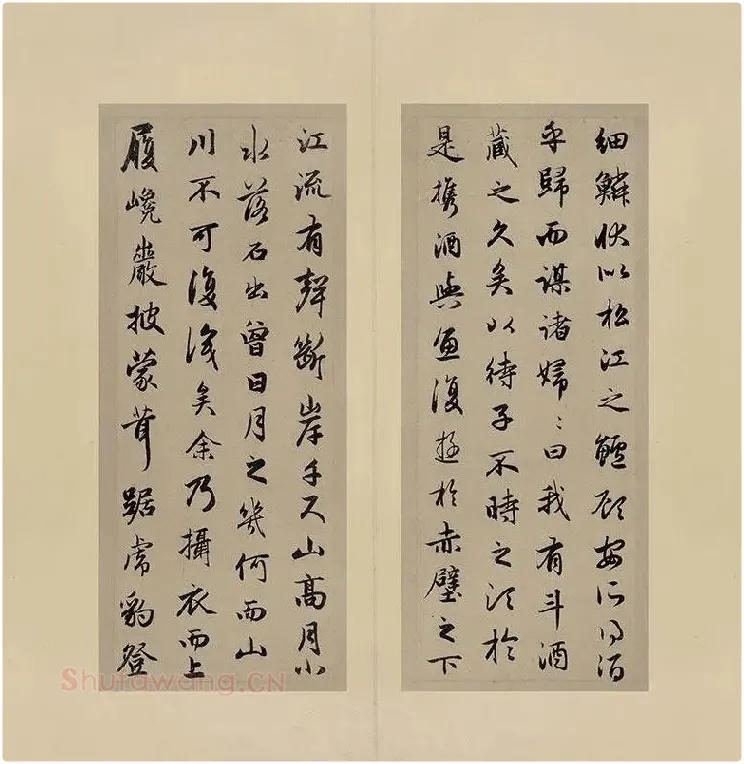 細鱗狀似松江之鱸顧安所得酒
乎歸而謀諸婦〻曰我有斗酒
藏之久矣以待子不時之須於
是携酒與魚復遊於赤壁之下
江流有聲斷岸千尺山高月小
水落石出曾日月之幾何而山
川不可復識矣余乃攝衣而上
履巉巖披蒙茸踞虎豹登
Shufawang.CN